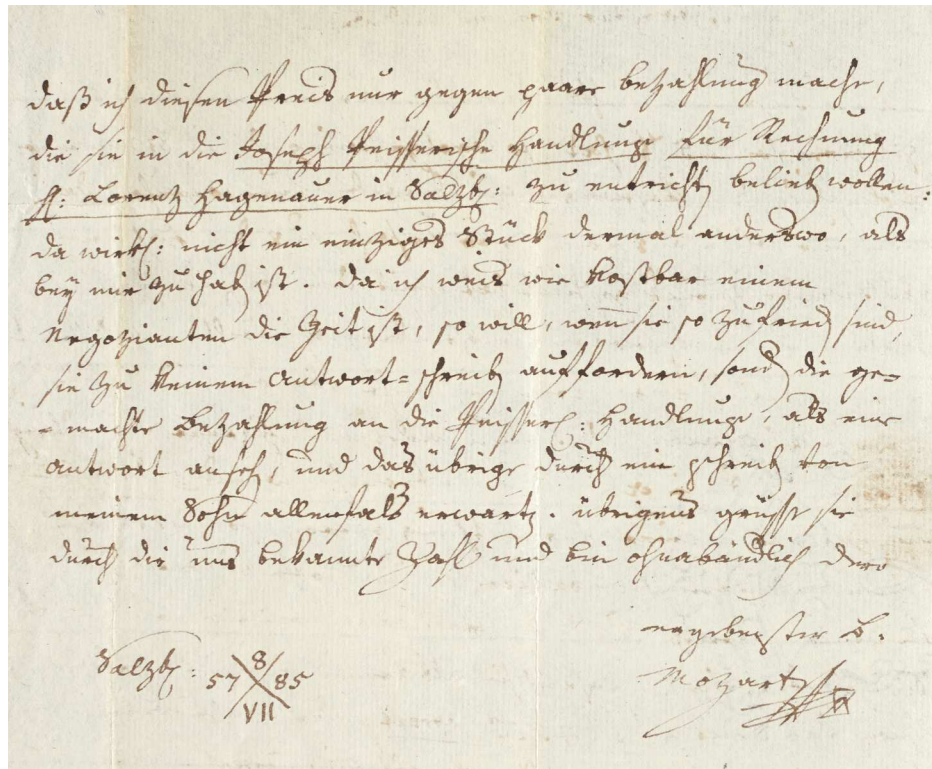 daß ich diesen Preis nur gegen paare bezahlung mache,
die sie in die Joseph Peisserische Handlung für Rechnung
H: Lorenz Hagenauer in Salzb: zu entricht belieb wollen:
da wirkl: nicht ein einziges Stück dermal anderswo, als
bey mir zu hab ist. da ich weis wie kostbar einem
Negozianten die Zeit ist, so will, wenn sie so zufried sind,
sie zu keinem Antwort=schreib auffordern, sond die ge=
=machte Bezahlung an die Peisser: Handlung, als eine
Antwort anseh, und das übrige durch ein schreib von
meinem Sohn allenfals erwart. übrigens grüsse sie
durch die uns bekannte Zahl und bin ohnabändlich dero
ergebenster B.
Mozart
Salzb: 8/
57 85
VII